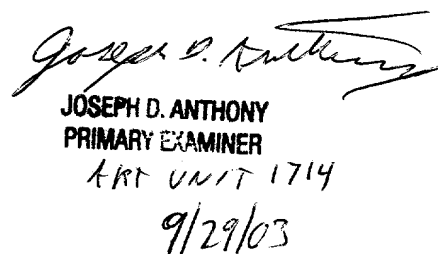 Joseph D. Anthony
JOSEPH D. ANTHONY
PRIMARY EXAMINER
ART UNIT 1714
9/29/03